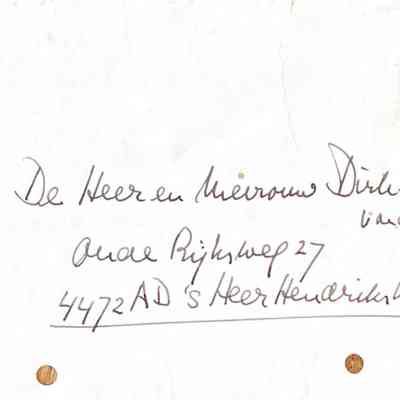 De Heer en Mevrouw Dirk
van
Oude Rijksweg 27
4472 AD 's Heer Hendriksk